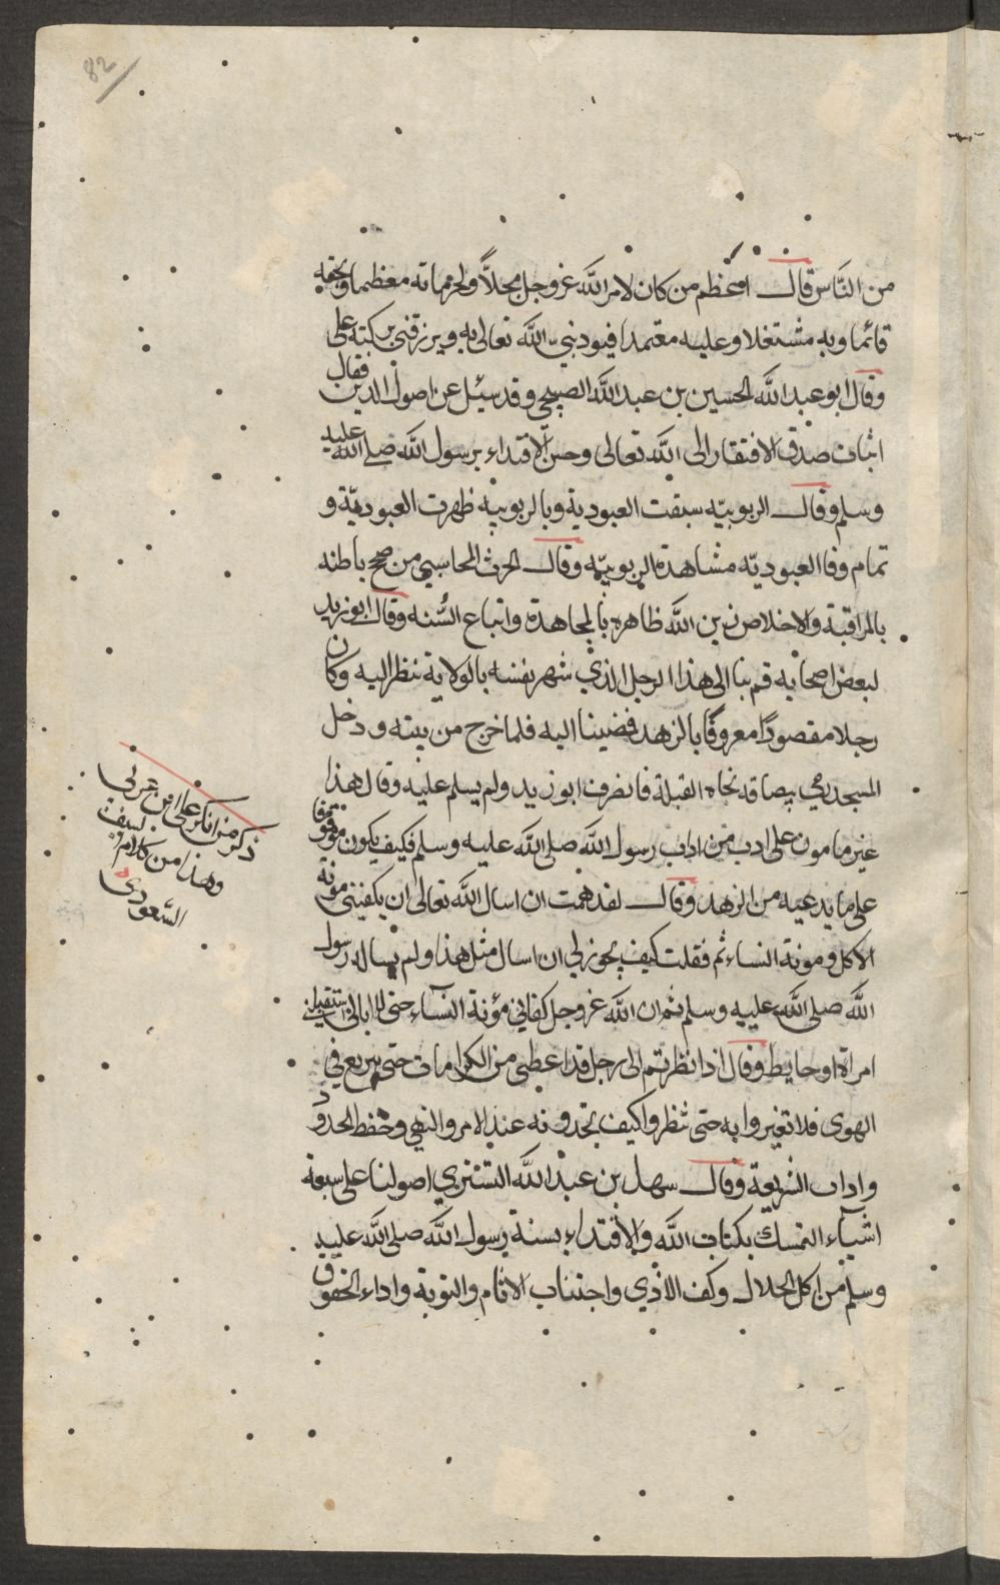 82
من النَّاس قال اوعظم من كان لامر الله عز وجل مجلاًّ ولحرماته معظما وبحقه
قائما وبه مشتغلا وعليه معتمدا فيودبني الله تعالى به ويرزقني بركته على
وقال ابو عبد الله الحسين بن عبد الله الصبيحي وقد سئل عن اصول الدين فقال
اثبات صدق الافتقار الى الله تعالى وحسن الاقتداء برسول الله صلى الله عليه
وسلم وقال الربوبيّه سبقت العبودية وبالربوبيه ظهرت العبوديّة و
تمام وفا العبوديّه مشاهدة الربوبيّه وقال الحرث المحاسبي من صحح باطنه
بالمراقبة والاخلاص زين الله ظاهره بالمجاهدة واتباع السُّنه وقال ابو يزيد
لبعض اصحابه قم بنا الى هذا الرجل الذي شهر نفسه بالولاية ننظر اليه وكان
رجلا مقصودًا معروفًا بالزهد فمضينا اليه فلما خرج من بيته ودخل
المسجد رمى ببصاقه تجاه القبلة فانصرف ابو يزيد ولم يسلم عليه وقال هذا
غير مامون على ادب من اداب رسول الله صلى الله عليه وسلم فكيف يكون موثوقا
على ما يدعيه من الزهد وقال لقد هممت ان اسال الله تعالى ان يكفيني مونة
الاكل ومونة النساء ثم فقلت كيف يجوز لي ان اسال مثل هذا ولم يساله رسول
الله صلى الله عليه وسلم ثم ان الله عز وجل كفاني مؤنة النساء حتى لا ابالي استقبلني
امراة او حايط وقال اذا نظرتم الى رجل قد اعطى من الكرامات حتى يربع في
الهوى فلا تغيروا به حتى تنظروا كيف تجدونه عند الامر والنهي وحفظ الحدود
واداب الشريعة وقال سهل بن عبد الله التستري اصولنا على سبعة
اشياء التمسك بكتاب الله والاقتداء بسنة رسول الله صلى الله عليه
وسلم من اكل الحلال وكف الاذي واجتناب الاثام والتوبة واداء الحقوق
ذكر من انكر على ابن عربي
وهذا من كلام
السعودي